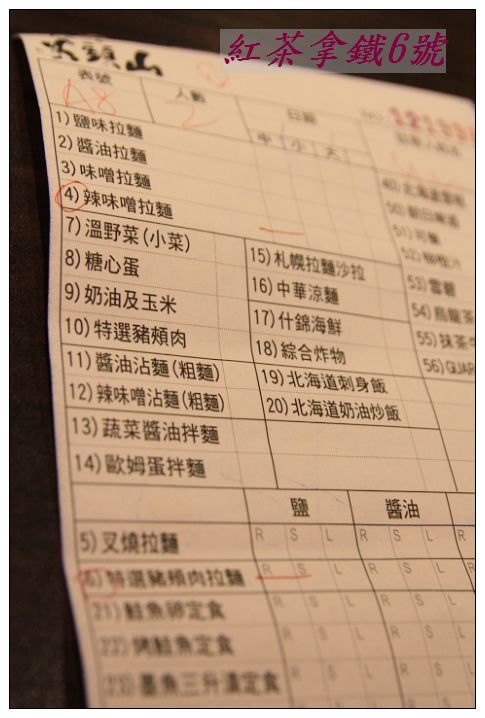 紅茶拿鐵6號
火頭山
表號 人數 日期 NO.
A8 2 中 小 大
1)鹽味拉麵
2)醬油拉麵
3)味噌拉麵
4)辣味噌拉麵
7)溫野菜(小菜)
8)糖心蛋
9)奶油及玉米
10)特選豬頰肉
11)醬油沾麵(粗麵)
12)辣味噌沾麵(粗麵)
13)蔬菜醬油拌麵
14)歐姆蛋拌麵
15)札幌拉麵沙拉
16)中華涼麵
17)什錦海鮮
18)綜合炸物
19)北海道刺身飯
20)北海道奶油炒飯
50)朝日啤酒
51)可樂
52)柳橙汁
53)雪碧
54)烏龍茶
55)抹茶
56)GUAR
鹽 醬油
5)叉燒拉麵 R S L R S L R
6)特選豬頰肉拉麵 R S L R S L
21)鮭魚卵定食 R S L R S L
22)烤鮭魚定食 R S L R S L
23)墨魚三升漬定食 R S L R S